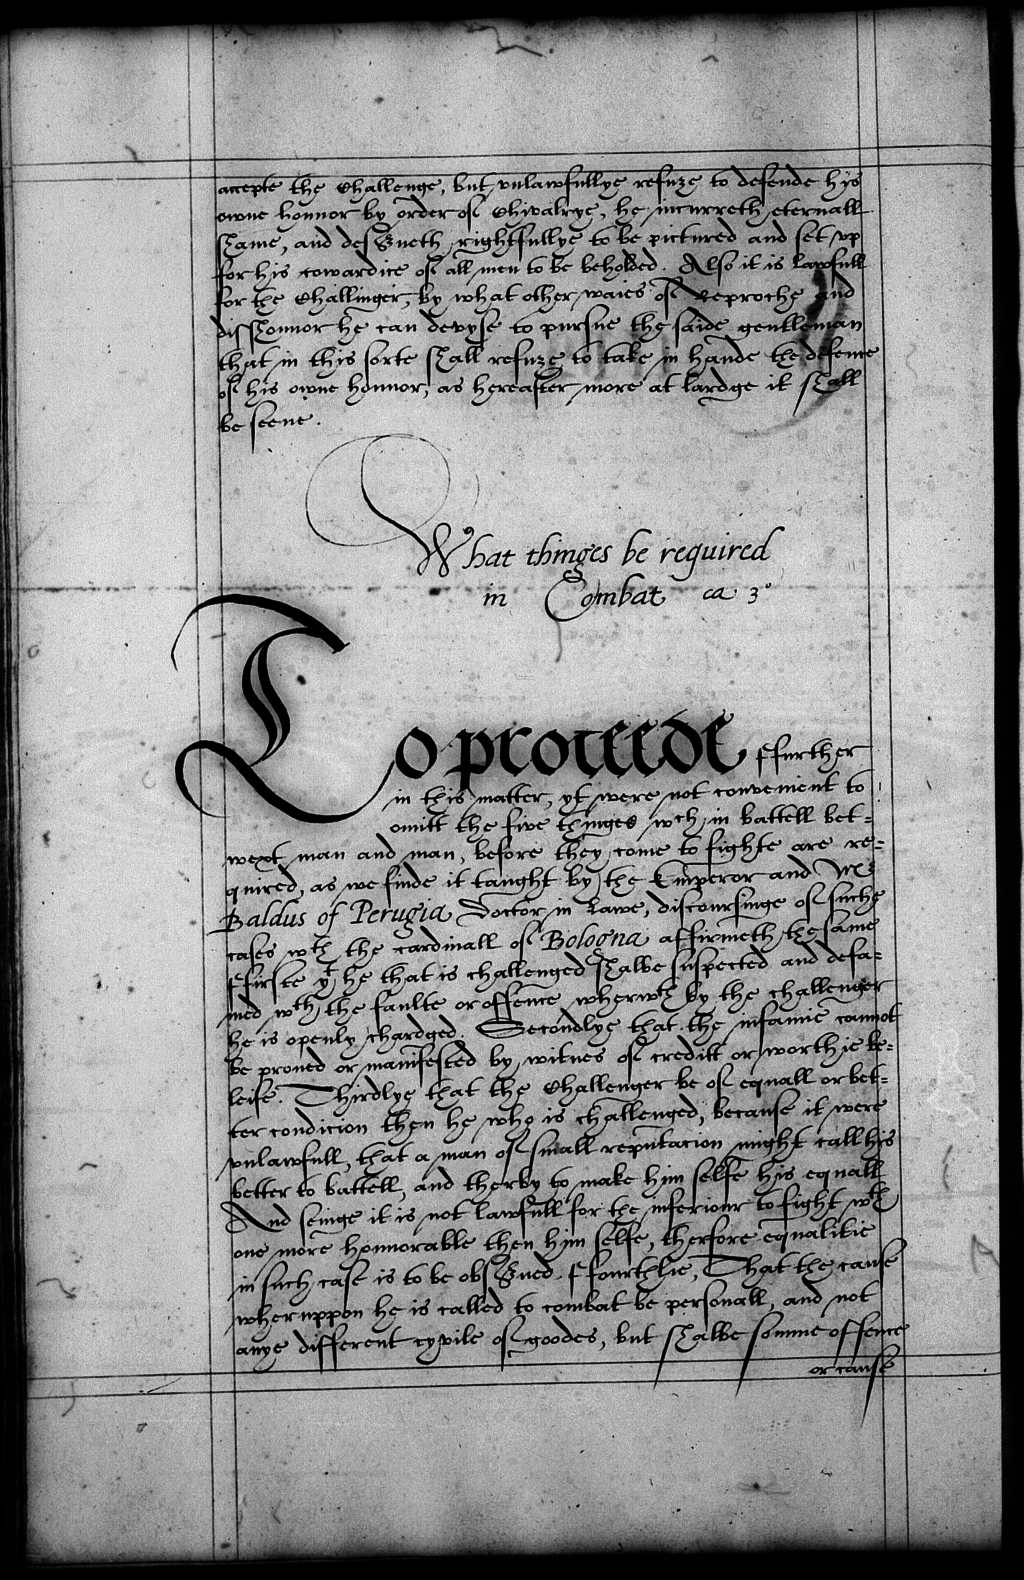 accepte the Challenge, but vnlawfullye refuze to defende hys
owne honnor by order of Chivalrye, he incurreth eternall
shame, and desserueth rightfullye to be pictured and set vp
for his cowardice of all men to be beholded. Also it is lawfull
for the Challinger, by what other waies of Reproche and
disshonnor he can devyse to pursue the saide gentleman
that in this sorte shall refuze to take in hande the defence
of his owne honnor, as hereafter more at lardge it shall
be seene.
What thinges be required
in Combat ca 3°
To proceede ffurther
in this matter, yt were not convenient to
omitt the five thinges wch in battell bet=
wext man and man, before they come to fighte are re=
quired, as we finde it taught by the Emperor and
Baldus of Perugia Doctor in Lawe, discoursinge of suche
cases wth the cardinall of Bologna affirmeth the same
ffirste yt he that is challenged shalbe suspected and defa=
med wth the faulte or offence wherwth by the challenger
he is openly chardged. Secondlye that the infamie cannot
be proued or manifested by witnes of creditt or worthie be=
leife. Thirdlye that the Challenger be of equall or bet=
ter condicion then he who is challenged, because it were
vnlawfull, that a man of small reputacion might call his
better to battell, and therby to make him selfe his equall
And seinge it is not lawfull for the inferiour to fight wth
one more honnorable then him selfe, therfore equalitie
in such case is to be obserued. ffourthlie, That the cause
wheruppon he is called to combat be personall, and not
anye different cyvile of goodes, but shalbe somme offence
or cause